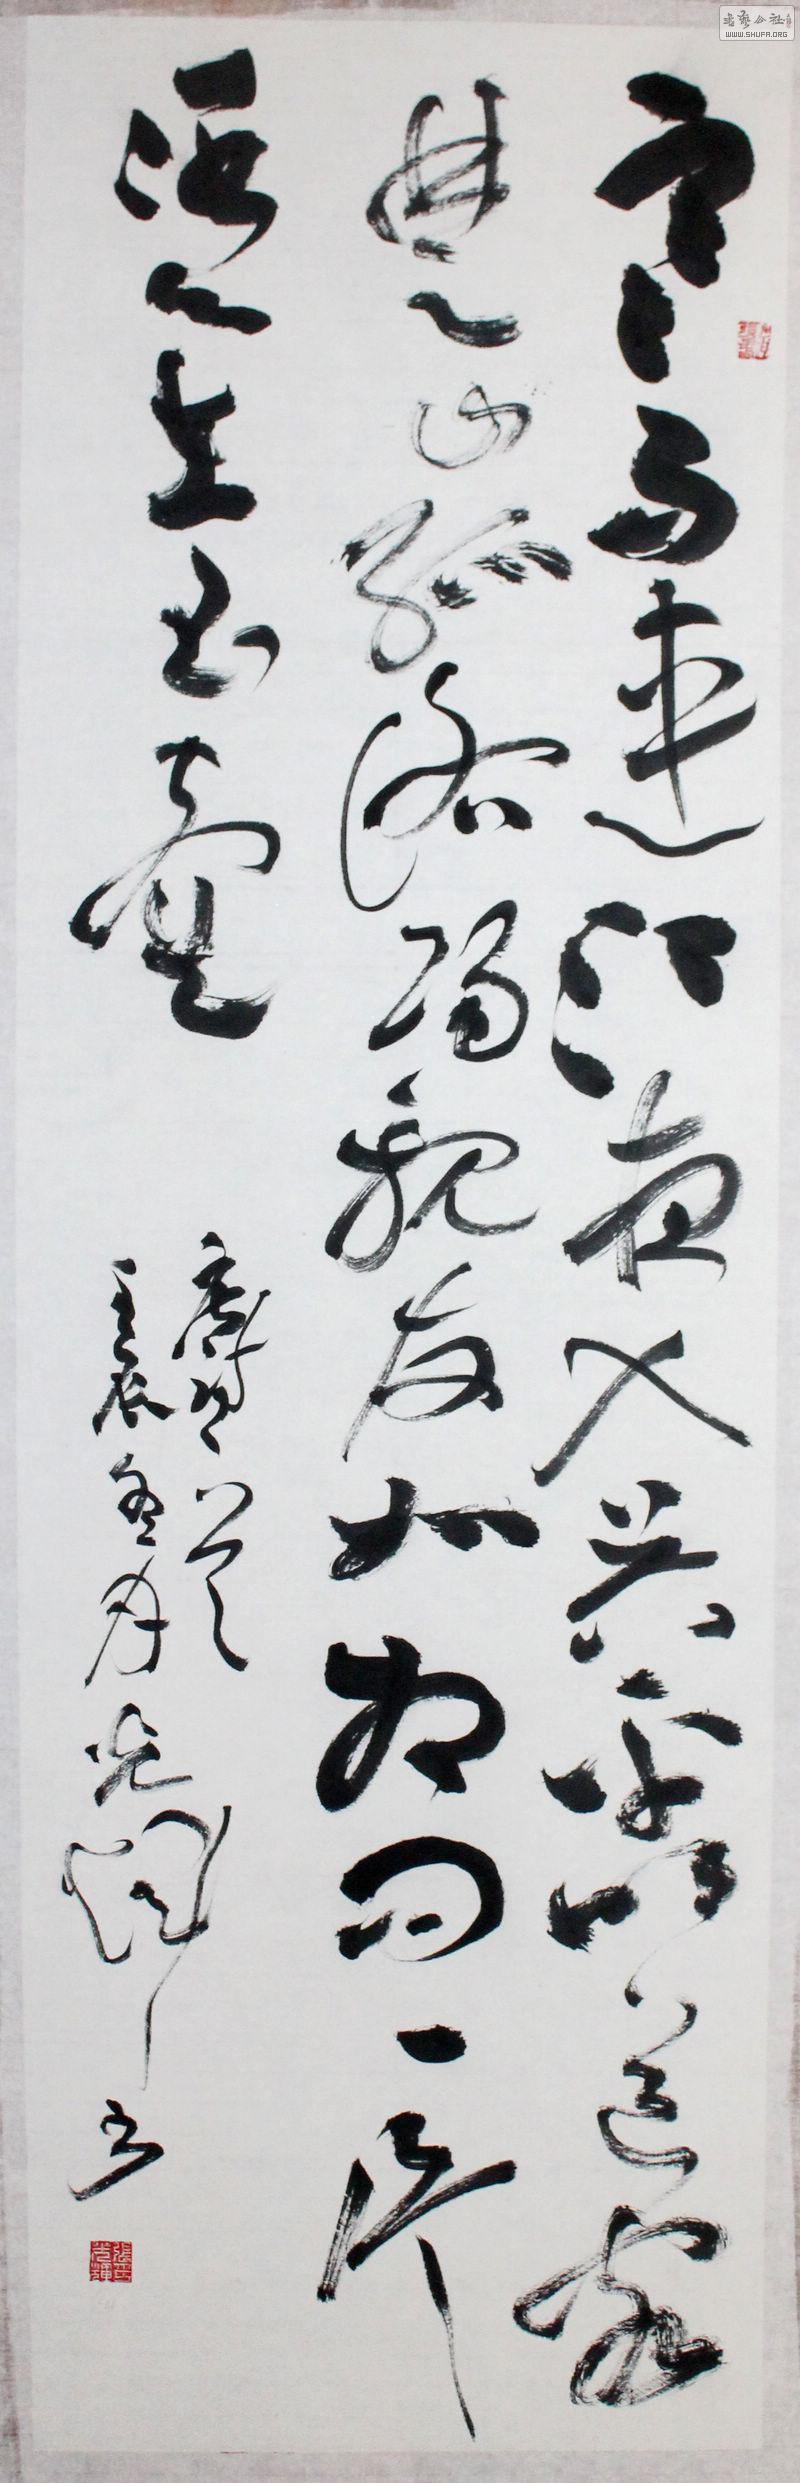 書藝公社
WWW.SHUFA.ORG
寒雨連江夜入吴平明送客
楚山孤洛陽親友如相问一片
冰心在玉壺
壬辰冬月光輝书